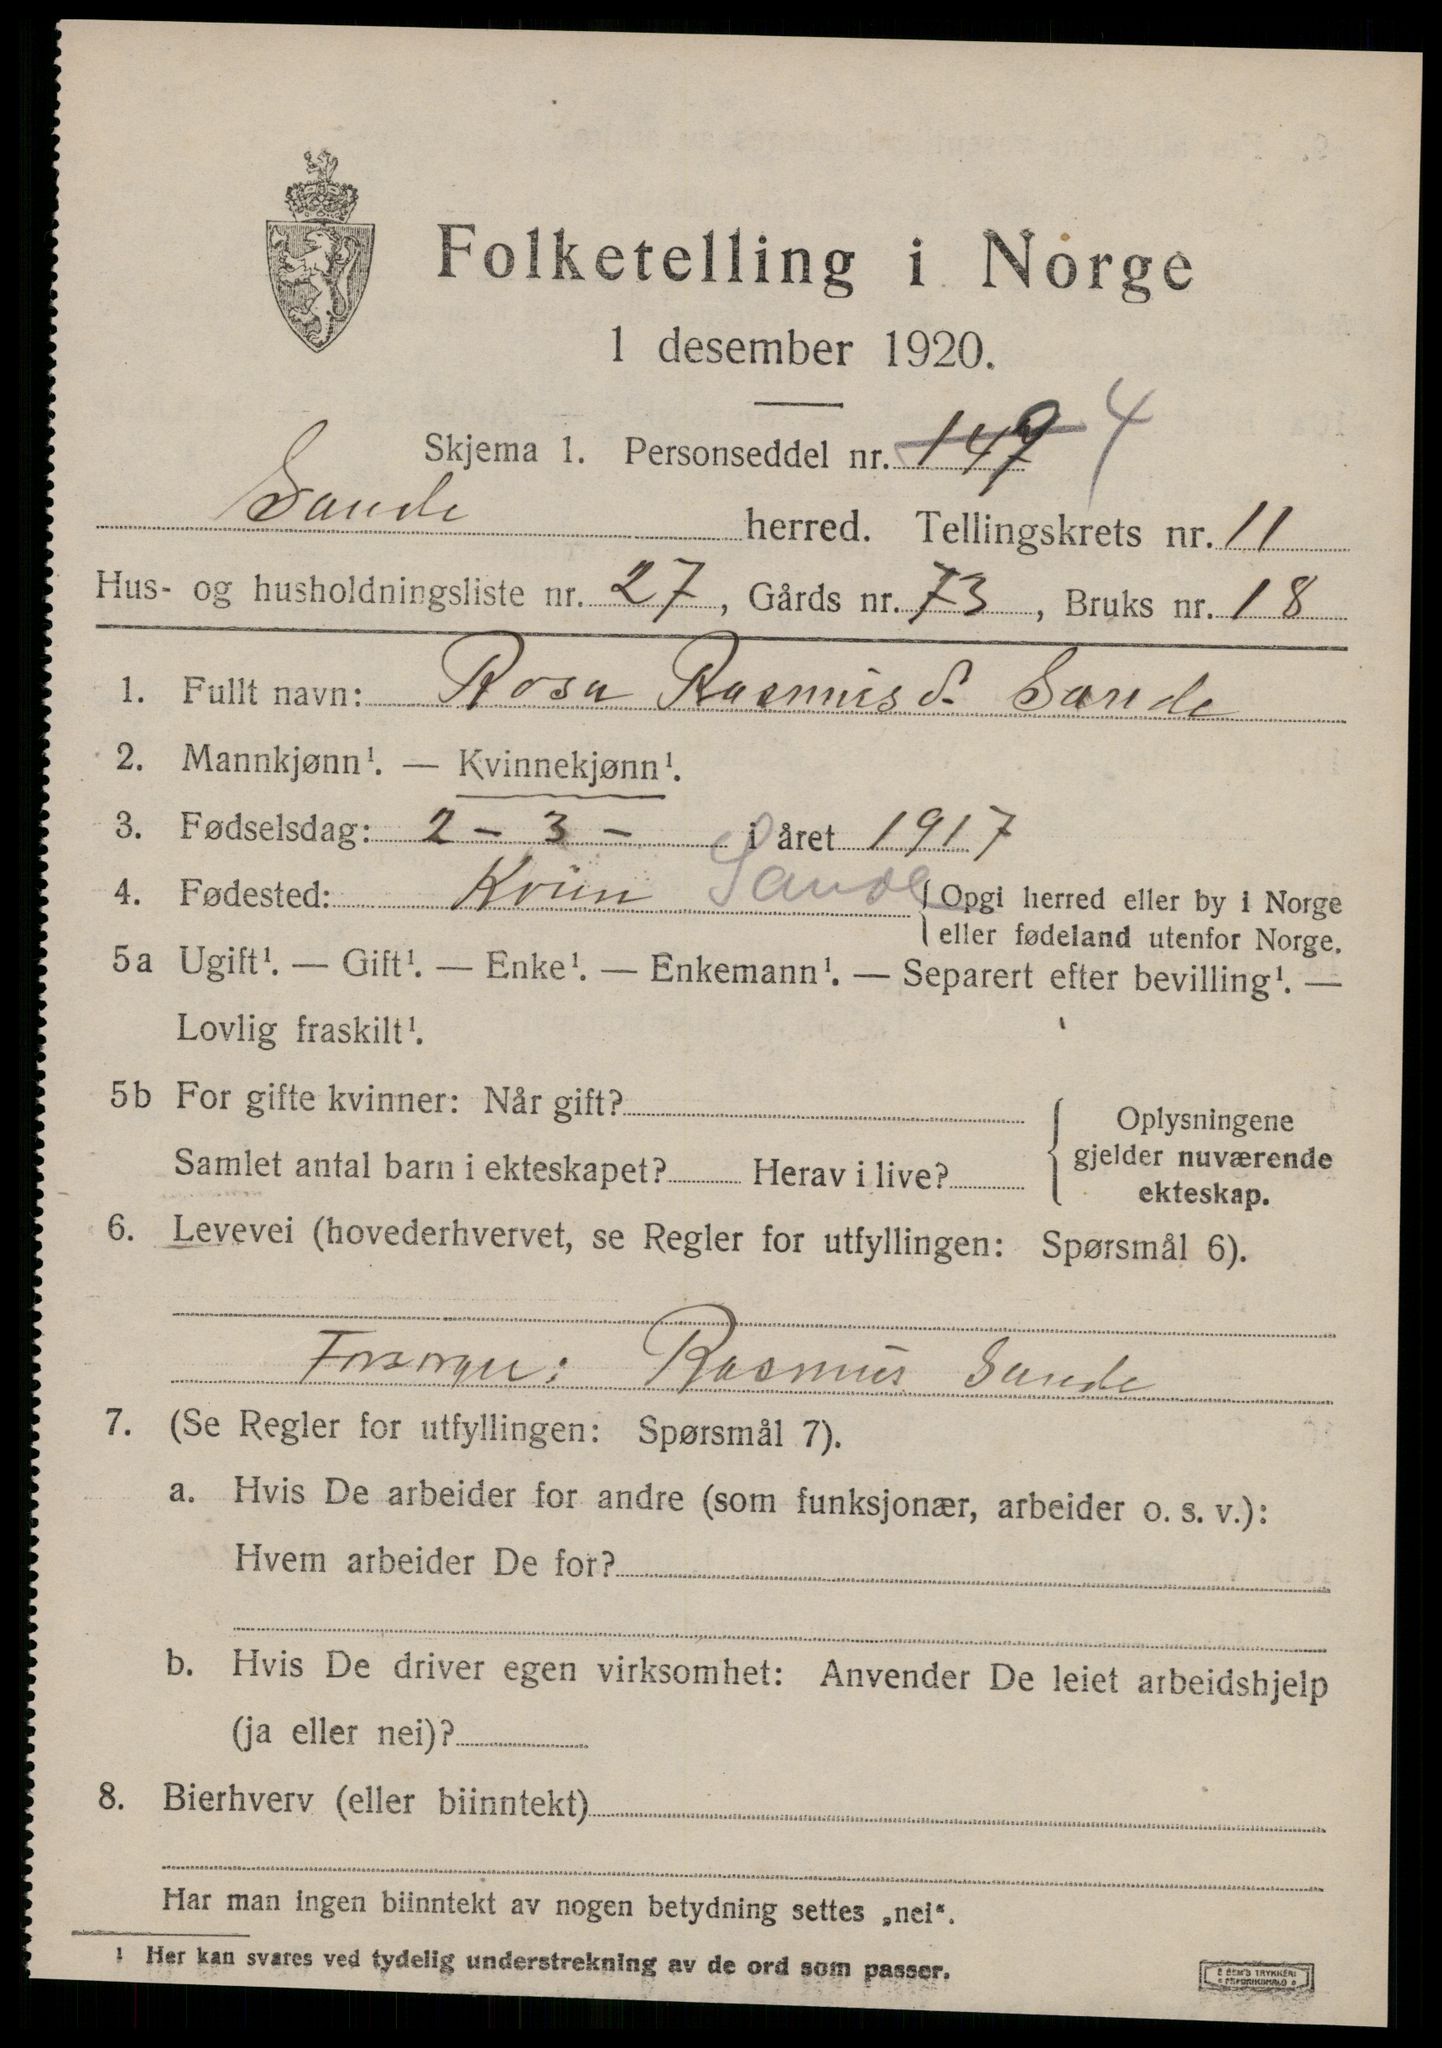 Folketelling i Norge
1 desember 1920.
Skjema 1. Personseddel nr. 149 4
Sande herred. Tellingskrets nr. 11
Hus- og husholdningsliste nr. 27, Gårds nr. 73, Bruks nr. 18
1. Fullt navn: Rosa Rasmusd. Sande
2. Mannkjønn¹. — Kvinnekjønn¹.
3. Fødselsdag: 2 - 3 - i året 1917
4. Fødested: Sande { Opgi herred eller by i Norge
eller fødeland utenfor Norge.
5a Ugift¹. — Gift¹. — Enke¹. — Enkemann¹. — Separert efter bevilling¹. —
Lovlig fraskilt¹.
5b For gifte kvinner: Når gift?
Samlet antal barn i ekteskapet? Herav i live?
{ Oplysningene
gjelder nuværende
ekteskap.
6. Levevei (hovederhvervet, se Regler for utfyllingen: Spørsmål 6).
Forsørger: Rasmus Sande
7. (Se Regler for utfyllingen: Spørsmål 7).
a. Hvis De arbeider for andre (som funksjonær, arbeider o. s. v.):
Hvem arbeider De for?
b. Hvis De driver egen virksomhet: Anvender De leiet arbeidshjelp
(ja eller nei)?
8. Bierhverv (eller biinntekt)
Har man ingen biinntekt av nogen betydning settes „nei“.
¹ Her kan svares ved tydelig understrekning av de ord som passer.